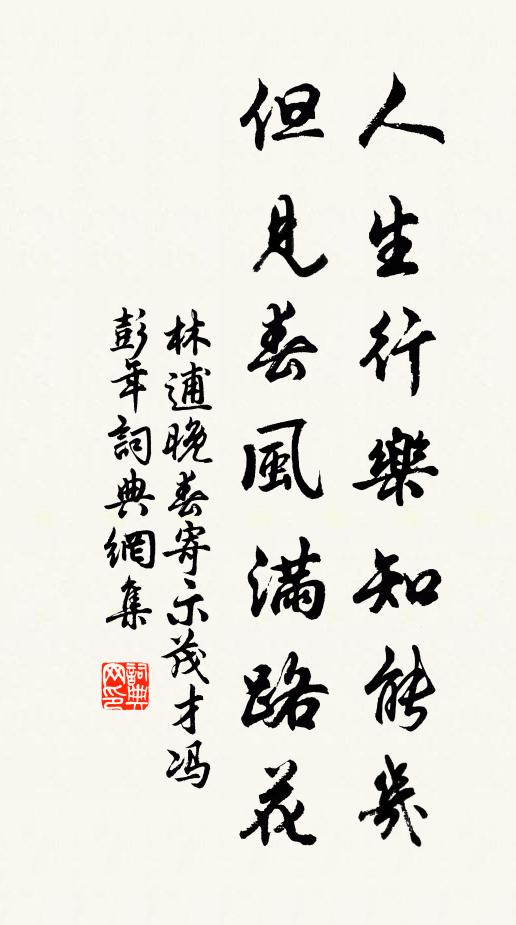 人生行樂知能幾
但見春風滿路花
林逋晚春寄示茂才馮
彭年詞典網集
詞典
网印